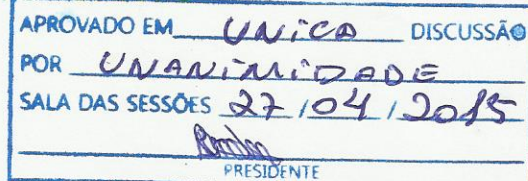 APROVADO EM UNiCA DISCUSSÃO
POR UNANiMiDADE
SALA DAS SESSÕES 27 / 04 / 2015
PRESIDENTE